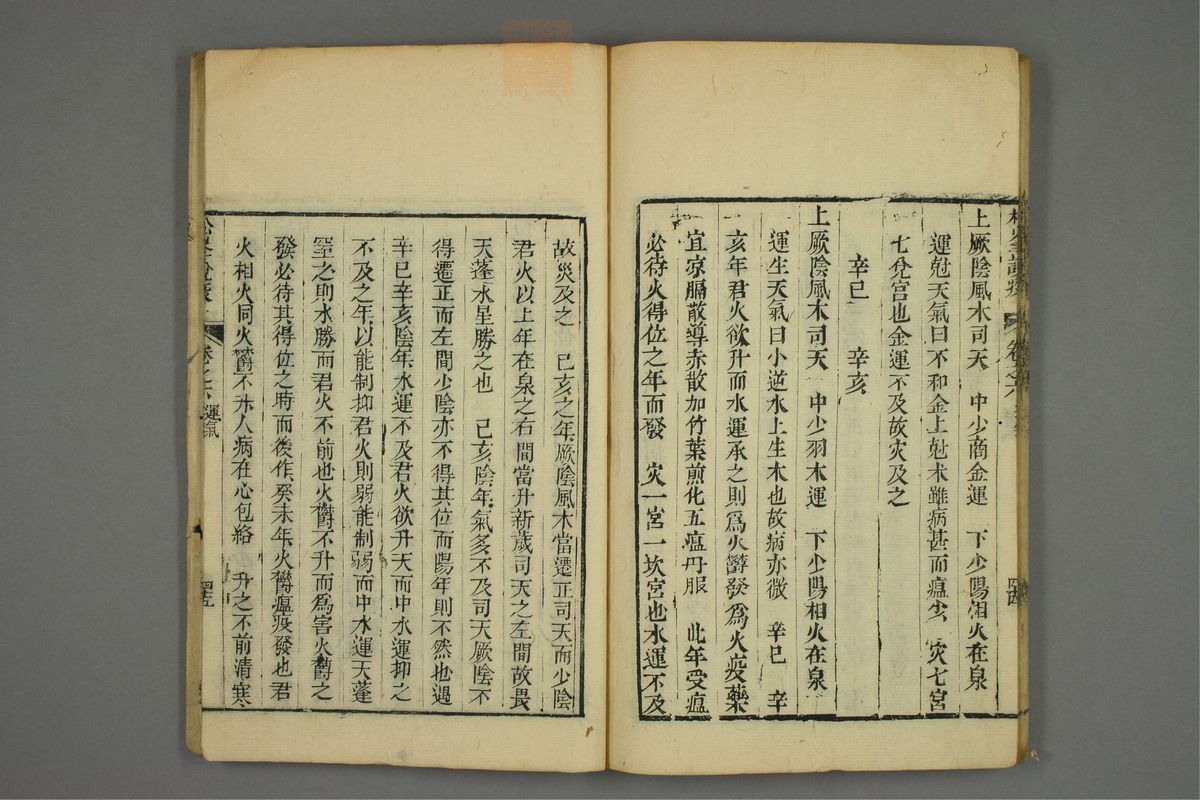 上厥陰風木司天　中少商金運　下少陽相火在泉
運尅天氣曰不和金上尅木雖病甚而瘟少　灾七宮
七兌宮也金運不及故灾及之
辛巳　辛亥
上厥陰風木司天　中少羽木運　下少陽相火在泉
運生天氣曰小逆水上生木也故病亦微　辛巳　辛
亥年君火欲升而水運承之則爲火欝發爲火疫藥
宜凉膈散導赤散加竹葉煎化五瘟丹服　此年受瘟
必待火得位之年而發　灾一宮一坎宮也水運不及
故災及之　巳亥之年厥陰風木當遷正司天而少陰
君火以上年在泉之右間當升新歲司天之左間故畏
天蓬水星勝之也　巳亥陰年氣多不及司天厥陰不
得遷正而左間少陰亦不得其位而陽年則不然也遇
辛巳辛亥陰年水運不及君火欲升天而中水運抑之
不及之年以能制抑君火則弱能制弱而中水運天蓬
窒之則水勝而君火不前也火欝不升而爲害火欝之
發必待其得位之時而後作癸未年火欝瘟疫發也君
火相火同火欝不升人病在心包絡　升之不前清寒
卷之六　運氣
四五
四四